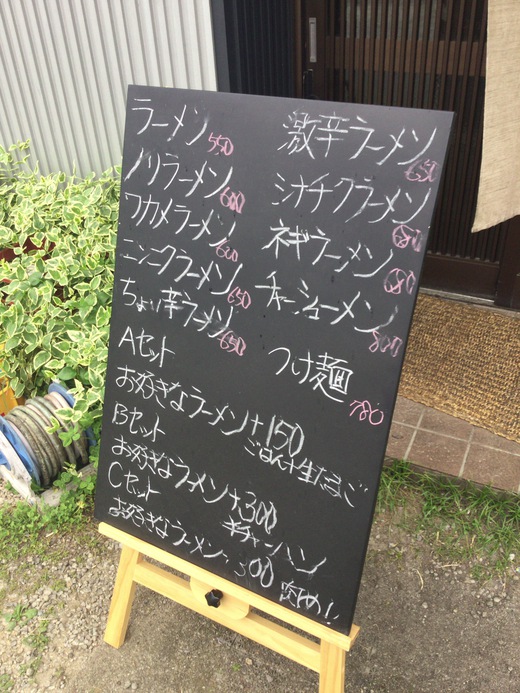 ラーメン 550
ノリラーメン 600
ワカメラーメン 600
ニンニクラーメン 650
ちょい辛ラーメン 650
激辛ラーメン 650
ネギラーメン
チャーシューメン 800
つけ麺 780
Aセット
お好きなラーメン+150
ごはん+生たまご
Bセット
お好きなラーメン+300
半チャーハン
Cセット
お好きなラーメン+300